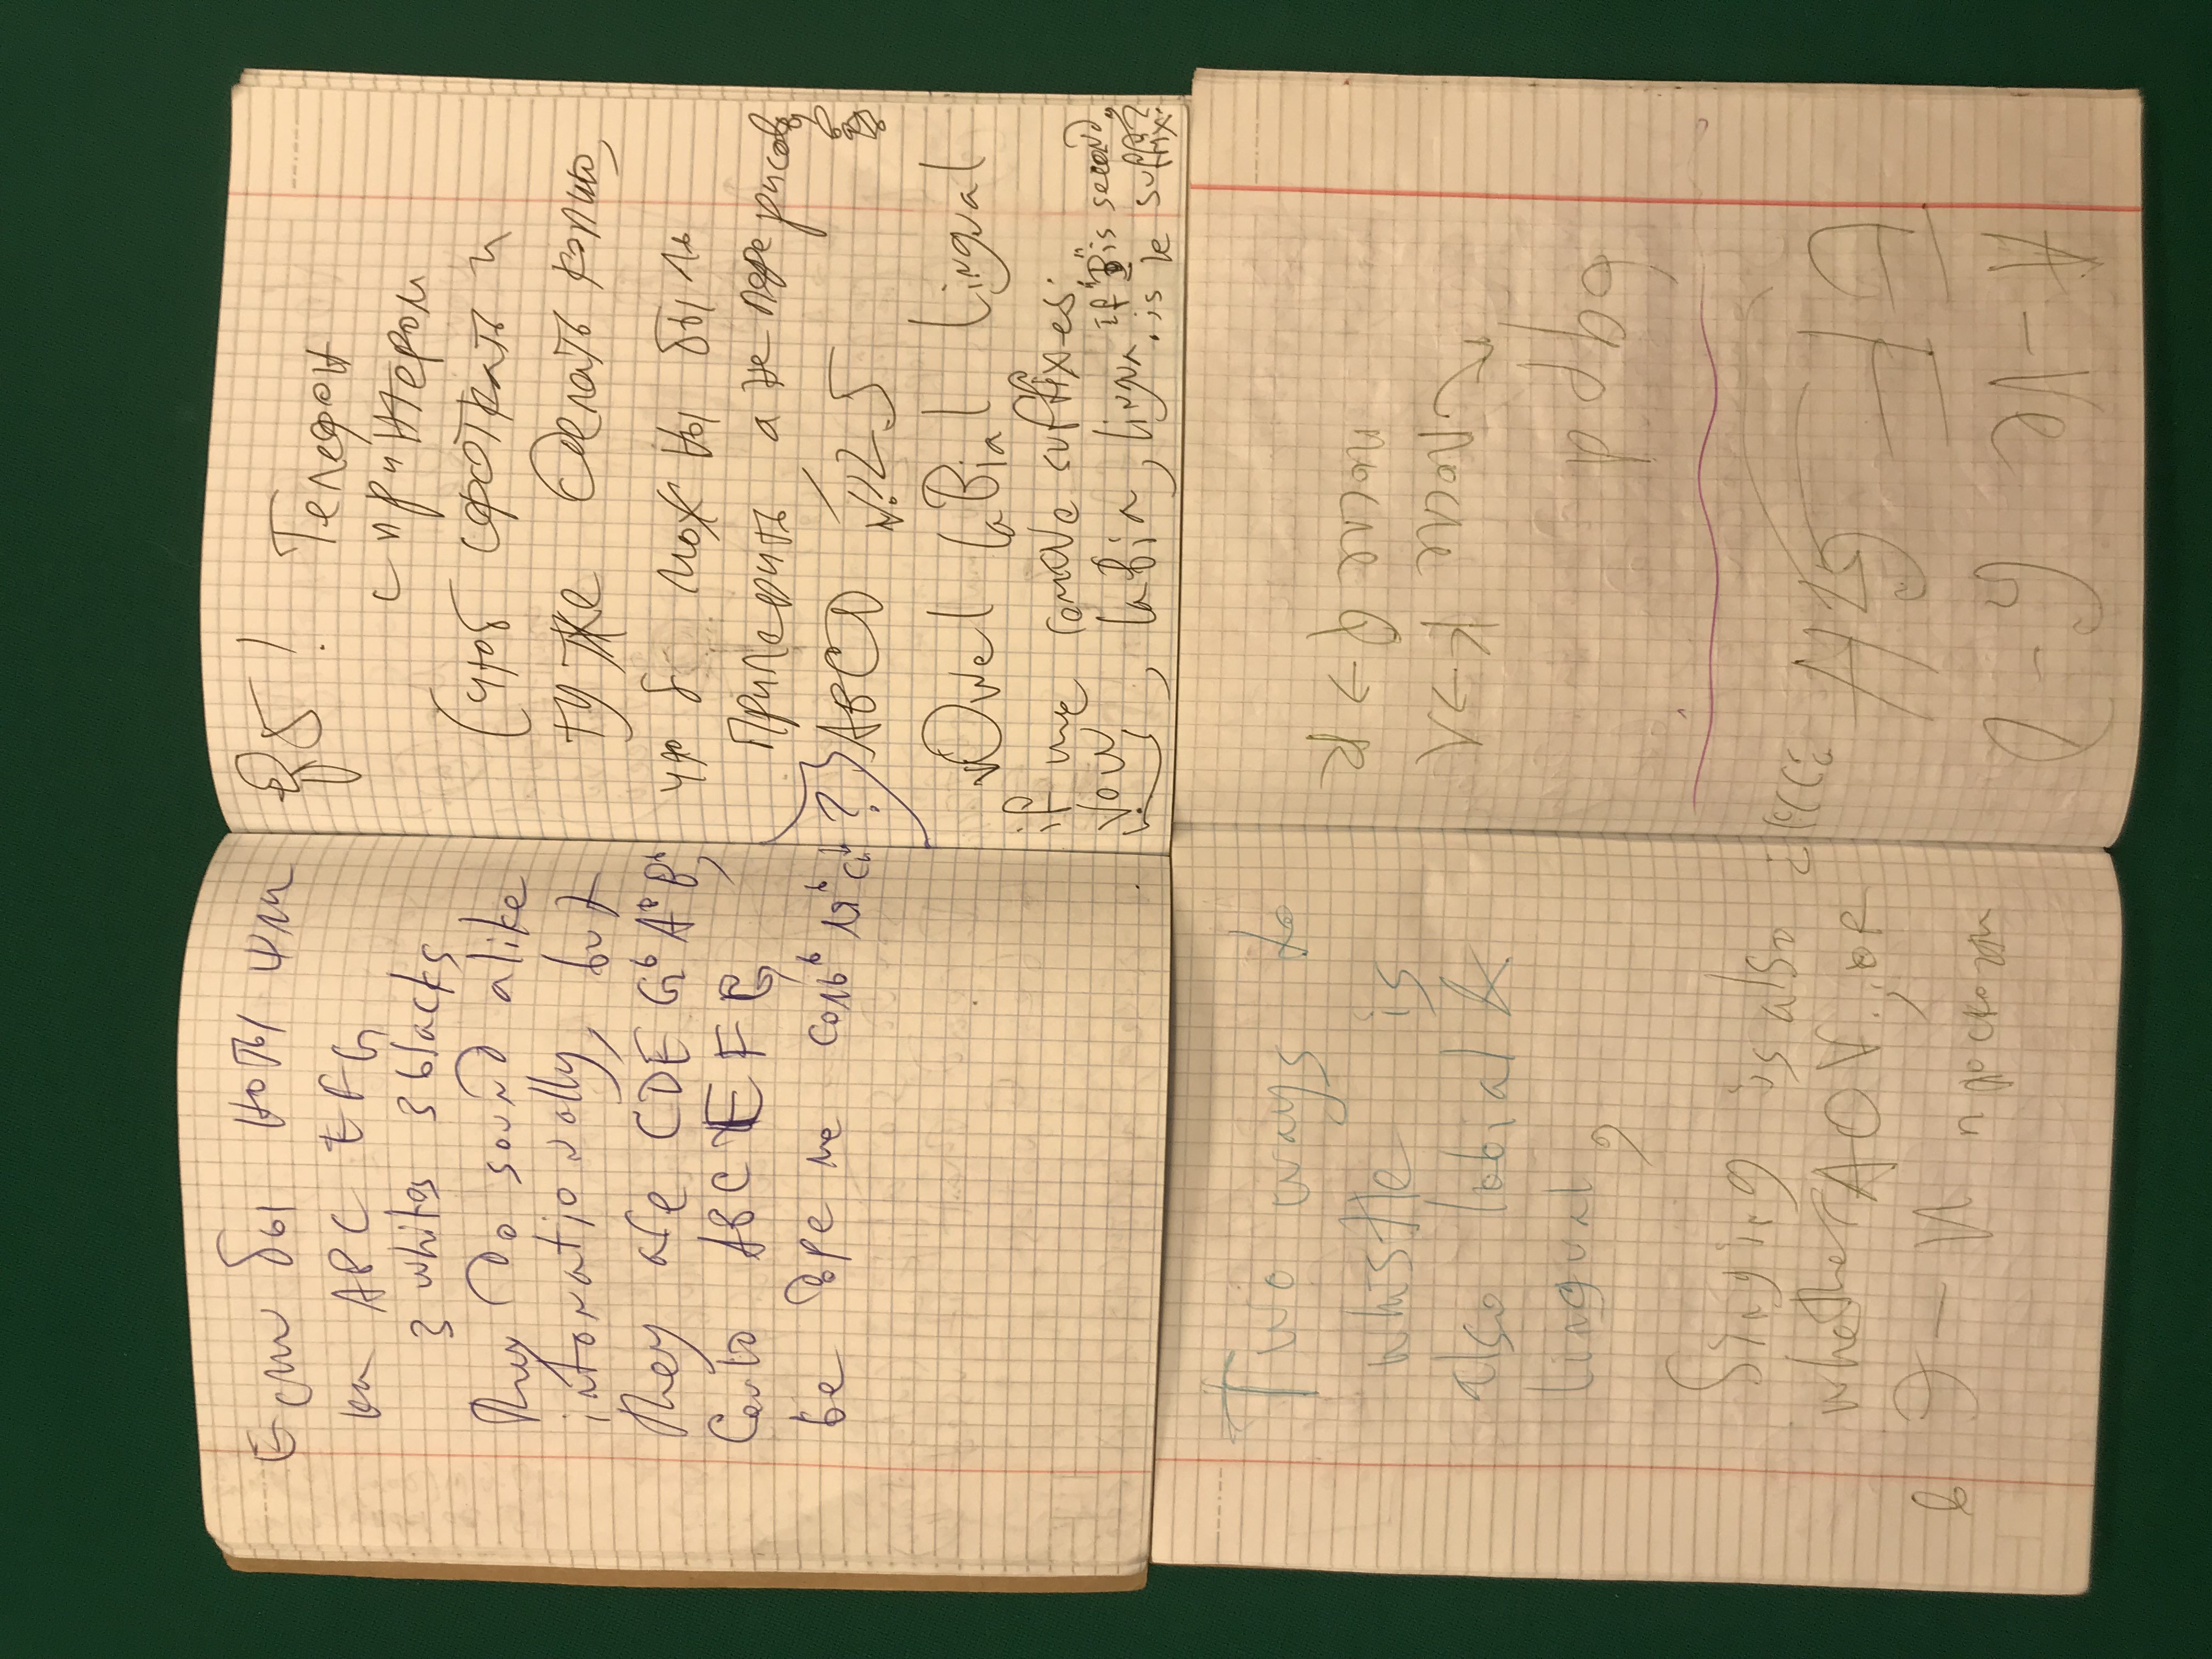 Если бы ноты шли
как ABC EFG
3 whites 3 blacks
They do sound alike
intonationally, but
they are CDE G♭ A♭ B♭,
Could ABC EFG
be до ре ми соль♭ ля♭ си♭ ?
! Телефон
с принтером
(чтоб сфоткать и
тут же сделать копию,
чтоб можно было
примерить а не перерисовывать
ABCD
vOwel laBial lingual
if we remove suffixes:
vow, labia, lingua. if "B" is second,
is le suffix?
Two ways to
whistle is
also labial &
lingual,
Singing is also
whether AOV.., or
Э – И
в
после Q → R
после K → Λ
b q p d
EF GH
A – Ve G – D